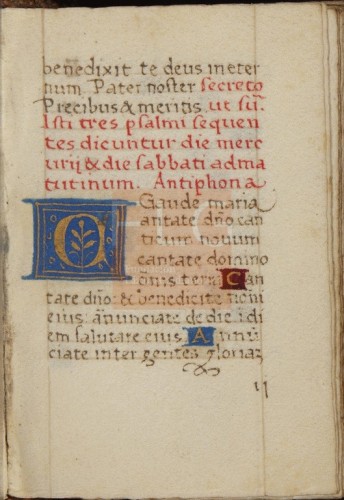 benedixit te deus in eter
num. Pater noster secreto
Precibus & meritis. ut su.
Isti tres psalmi sequen
tes dicuntur die merc
urij & die sabbati ad ma
tutinum. Antiphona
Gaude maria
C antate dño can
ticum novum
cantate domino
oñis terra C an
tate dño: & benedicite noni
eius añunciate de die i di
em salutare eius A n nũ
ciate inter gentes gloriaz
ij